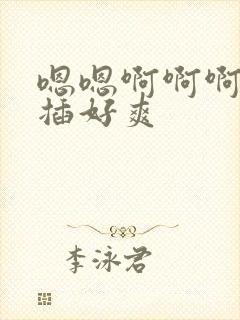 嗯嗯啊啊啊
插好爽
李泳君